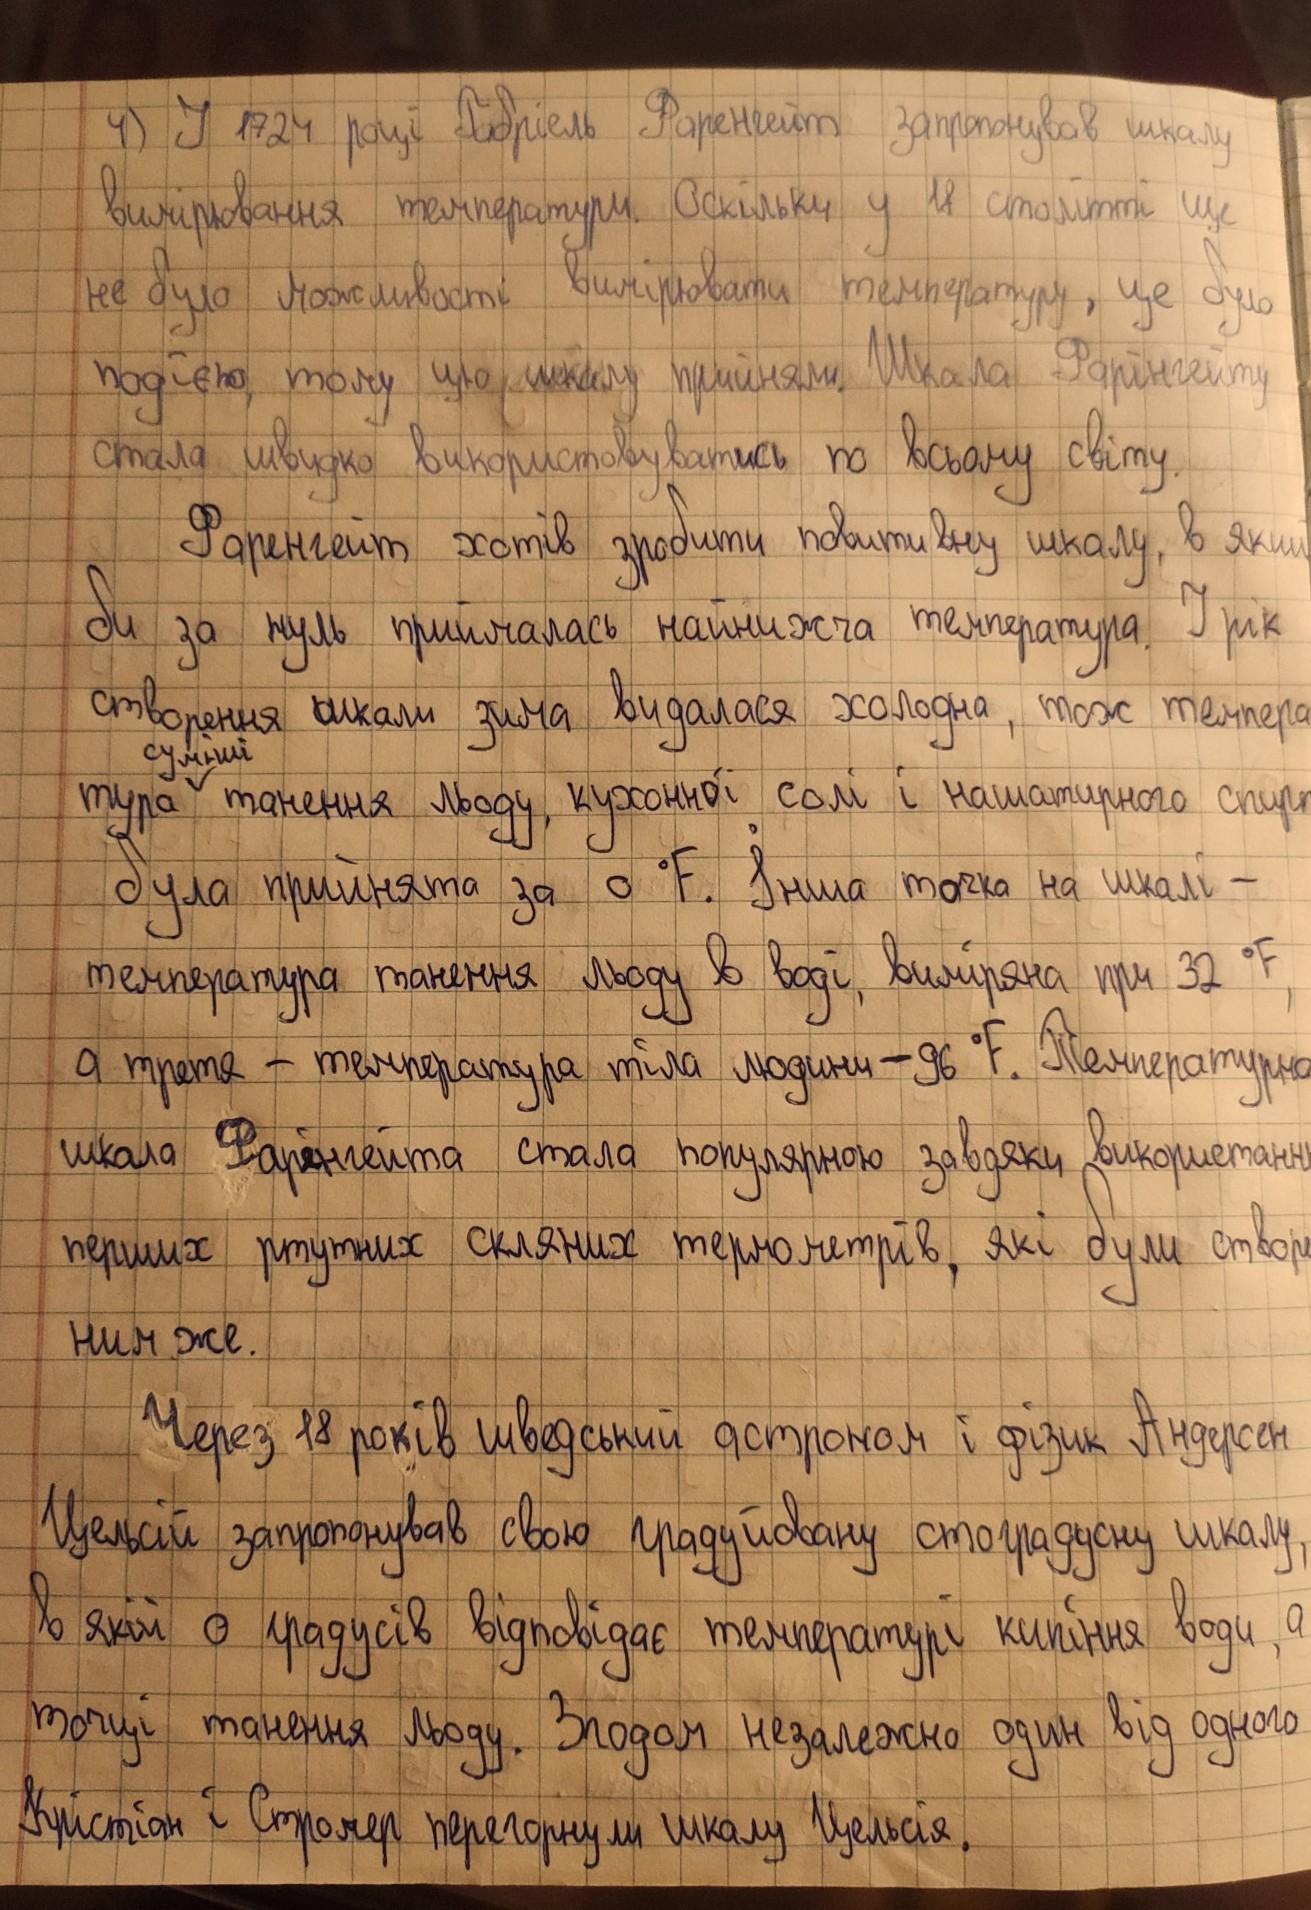 4) У 1724 році Габріель Фаренгейт запропонував шкалу
вимірювання температури. Оскільки у 18 столітті ще
не було можливості вимірювати температуру, це було
подією, тому цю шкалу прийняли. Шкала Фарінгейту
стала швидко використовуватись по всьому світу.
Фаренгейт хотів зробити позитивну шкалу, в який
би за нуль приймалась найнижча температура. У рік
створення шкали зима видалася холодна, тож темпера
суміші
тура танення льоду, кухонної солі і нашатирного спирт
була прийнята за 0 °F. Інша точка на шкалі –
температура танення льоду в воді, виміряна при 32 °F,
а третя – температура тіла людини – 96 °F. Температурна
шкала Фарінгейта стала популярною завдяки використанн
перших ртутних скляних термометрів, які були створе
ним же.
Через 18 років шведський астроном і фізик Андерсен
Цельсій запропонував свою градуйовану стоградусну шкалу,
в якій 0 градусів відповідає температурі кипіння води, а
точці танення льоду. Згодом незалежно один від одного
Крістіан і Стромер перегорнули шкалу Цельсія.